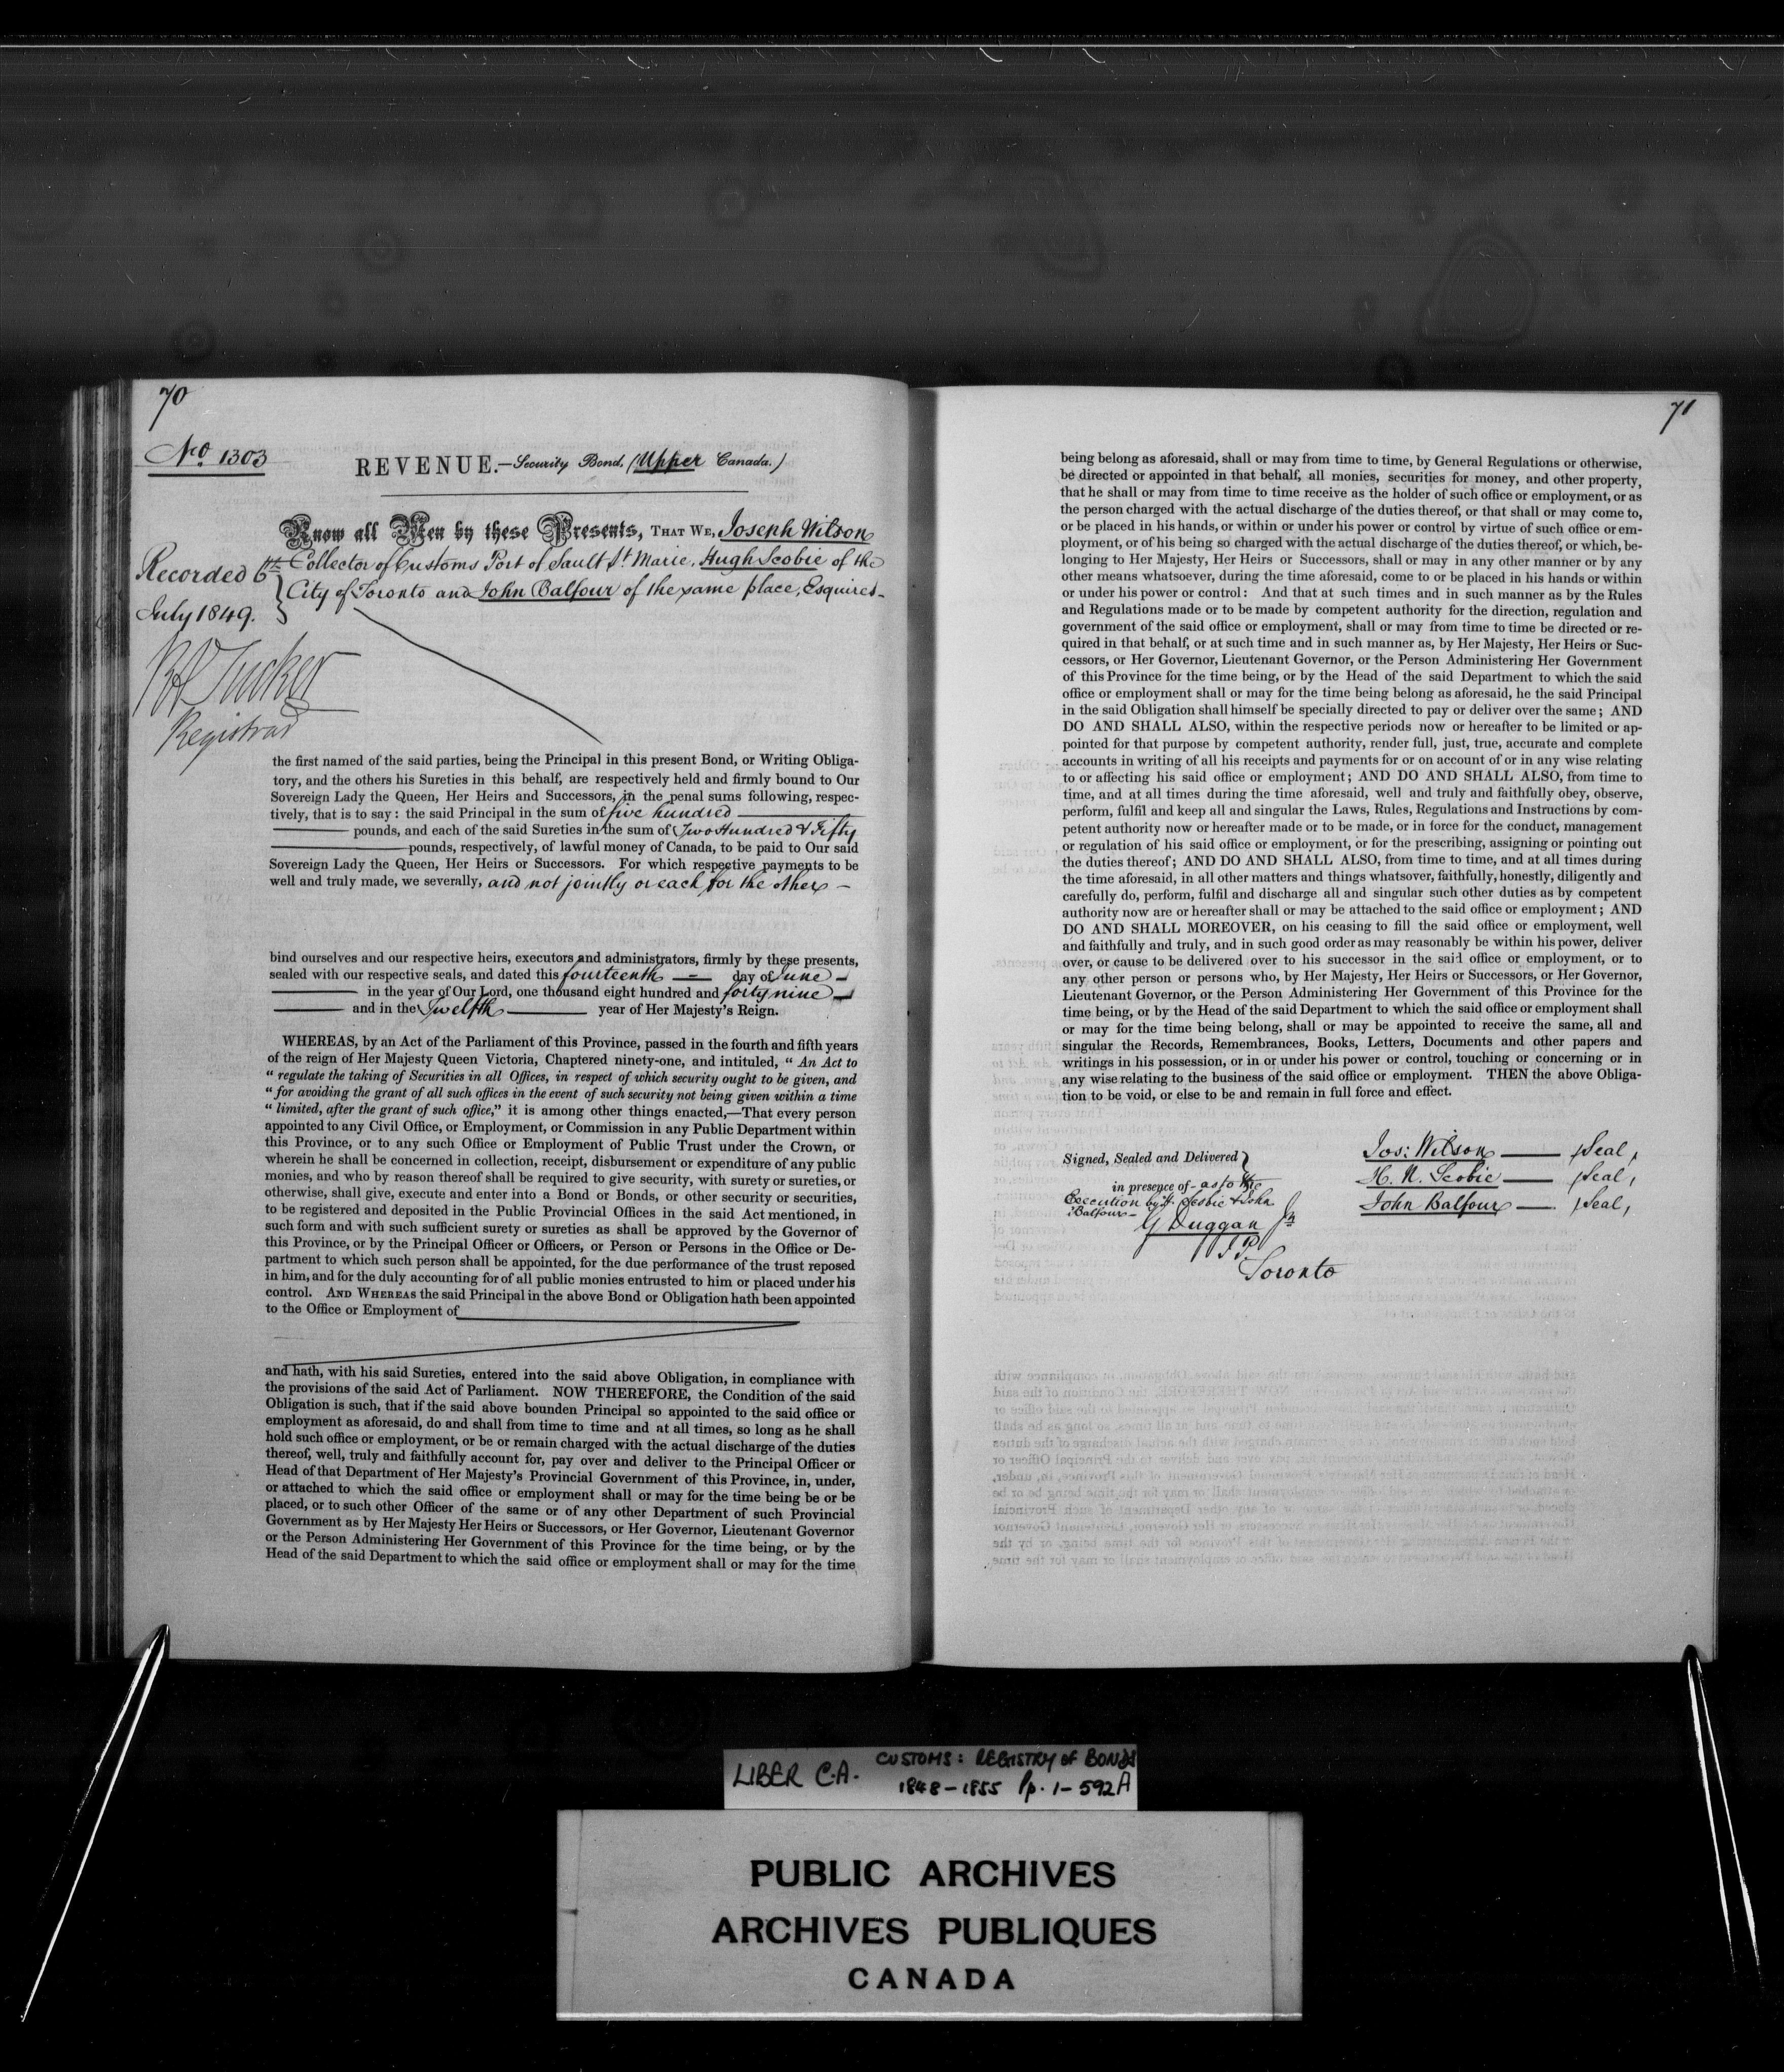 70
No. 1303
REVENUE.—Security Bond, (Upper Canada.)
Know all Men by these Presents, THAT WE, Joseph Wilson
Collector of Customs Port of Sault St. Marie, Hugh Scobie of the
City of Toronto and John Balfour of the same place, Esquires—
Recorded 6th
July 1849.
R A Tucker
Registrar
the first named of the said parties, being the Principal in this present Bond, or Writing Obliga-
tory, and the others his Sureties in this behalf, are respectively held and firmly bound to Our
Sovereign Lady the Queen, Her Heirs and Successors, in the penal sums following, respec-
tively, that is to say: the said Principal in the sum of five hundred
pounds, and each of the said Sureties in the sum of Two Hundred & Fifty
pounds, respectively, of lawful money of Canada, to be paid to Our said
Sovereign Lady the Queen, Her Heirs or Successors. For which respective payments to be
well and truly made, we severally, and not jointly or each for the other —
bind ourselves and our respective heirs, executors and administrators, firmly by these presents,
sealed with our respective seals, and dated this fourteenth — day of June —
in the year of Our Lord, one thousand eight hundred and forty nine —
and in the Twelfth year of Her Majesty's Reign.
WHEREAS, by an Act of the Parliament of this Province, passed in the fourth and fifth years
of the reign of Her Majesty Queen Victoria, Chaptered ninety-one, and intituled, " An Act to
" regulate the taking of Securities in all Offices, in respect of which security ought to be given, and
" for avoiding the grant of all such offices in the event of such security not being given within a time
" limited, after the grant of such office," it is among other things enacted,—That every person
appointed to any Civil Office, or Employment, or Commission in any Public Department within
this Province, or to any such Office or Employment of Public Trust under the Crown, or
wherein he shall be concerned in collection, receipt, disbursement or expenditure of any public
monies, and who by reason thereof shall be required to give security, with surety or sureties, or
otherwise, shall give, execute and enter into a Bond or Bonds, or other security or securities,
to be registered and deposited in the Public Provincial Offices in the said Act mentioned, in
such form and with such sufficient surety or sureties as shall be approved by the Governor of
this Province, or by the Principal Officer or Officers, or Person or Persons in the Office or De-
partment to which such person shall be appointed, for the due performance of the trust reposed
in him, and for the duly accounting for of all public monies entrusted to him or placed under his
control. AND WHEREAS the said Principal in the above Bond or Obligation hath been appointed
to the Office or Employment of
and hath, with his said Sureties, entered into the said above Obligation, in compliance with
the provisions of the said Act of Parliament. NOW THEREFORE, the Condition of the said
Obligation is such, that if the said above bounden Principal so appointed to the said office or
employment as aforesaid, do and shall from time to time and at all times, so long as he shall
hold such office or employment, or be or remain charged with the actual discharge of the duties
thereof, well, truly and faithfully account for, pay over and deliver to the Principal Officer or
Head of that Department of Her Majesty's Provincial Government of this Province, in, under,
or attached to which the said office or employment shall or may for the time being be or be
placed, or to such other Officer of the same or of any other Department of such Provincial
Government as by Her Majesty Her Heirs or Successors, or Her Governor, Lieutenant Governor
or the Person Administering Her Government of this Province for the time being, or by the
Head of the said Department to which the said office or employment shall or may for the time
71
being belong as aforesaid, shall or may from time to time, by General Regulations or otherwise,
be directed or appointed in that behalf, all monies, securities for money, and other property,
that he shall or may from time to time receive as the holder of such office or employment, or as
the person charged with the actual discharge of the duties thereof, or that shall or may come to,
or be placed in his hands, or within or under his power or control by virtue of such office or em-
ployment, or of his being so charged with the actual discharge of the duties thereof, or which, be-
longing to Her Majesty, Her Heirs or Successors, shall or may in any other manner or by any
other means whatsoever, during the time aforesaid, come to or be placed in his hands or within
or under his power or control: And that at such times and in such manner as by the Rules
and Regulations made or to be made by competent authority for the direction, regulation and
government of the said office or employment, shall or may from time to time be directed or re-
quired in that behalf, or at such time and in such manner as, by Her Majesty, Her Heirs or Suc-
cessors, or Her Governor, Lieutenant Governor, or the Person Administering Her Government
of this Province for the time being, or by the Head of the said Department to which the said
office or employment shall or may for the time being belong as aforesaid, he the said Principal
in the said Obligation shall himself be specially directed to pay or deliver over the same; AND
DO AND SHALL ALSO, within the respective periods now or hereafter to be limited or ap-
pointed for that purpose by competent authority, render full, just, true, accurate and complete
accounts in writing of all his receipts and payments for or on account of or in any wise relating
to or affecting his said office or employment; AND DO AND SHALL ALSO, from time to
time, and at all times during the time aforesaid, well and truly and faithfully obey, observe,
perform, fulfil and keep all and singular the Laws, Rules, Regulations and Instructions by com-
petent authority now or hereafter made or to be made, or in force for the conduct, management
or regulation of his said office or employment, or for the prescribing, assigning or pointing out
the duties thereof; AND DO AND SHALL ALSO, from time to time, and at all times during
the time aforesaid, in all other matters and things whatsover, faithfully, honestly, diligently and
carefully do, perform, fulfil and discharge all and singular such other duties as by competent
authority now are or hereafter shall or may be attached to the said office or employment; AND
DO AND SHALL MOREOVER, on his ceasing to fill the said office or employment, well
and faithfully and truly, and in such good order as may reasonably be within his power, deliver
over, or cause to be delivered over to his successor in the said office or employment, or to
any other person or persons who, by Her Majesty, Her Heirs or Successors, or Her Governor,
Lieutenant Governor, or the Person Administering Her Government of this Province for the
time being, or by the Head of the said Department to which the said office or employment shall
or may for the time being belong, shall or may be appointed to receive the same, all and
singular the Records, Remembrances, Books, Letters, Documents and other papers and
writings in his possession, or in or under his power or control, touching or concerning or in
any wise relating to the business of the said office or employment. THEN the above Obliga-
tion to be void, or else to be and remain in full force and effect.
Signed, Sealed and Delivered
in presence of - as to the
Execution by H. Scobie & John
Balfour—
G Duggan Jr
J.P.
Toronto
Jos: Wilson — (Seal,
H. N. Scobie — (Seal,
John Balfour — (Seal,
LIBER C.A. CUSTOMS: REGISTRY OF BONDS
1848-1855 Pp. 1-592A
PUBLIC ARCHIVES
ARCHIVES PUBLIQUES
CANADA